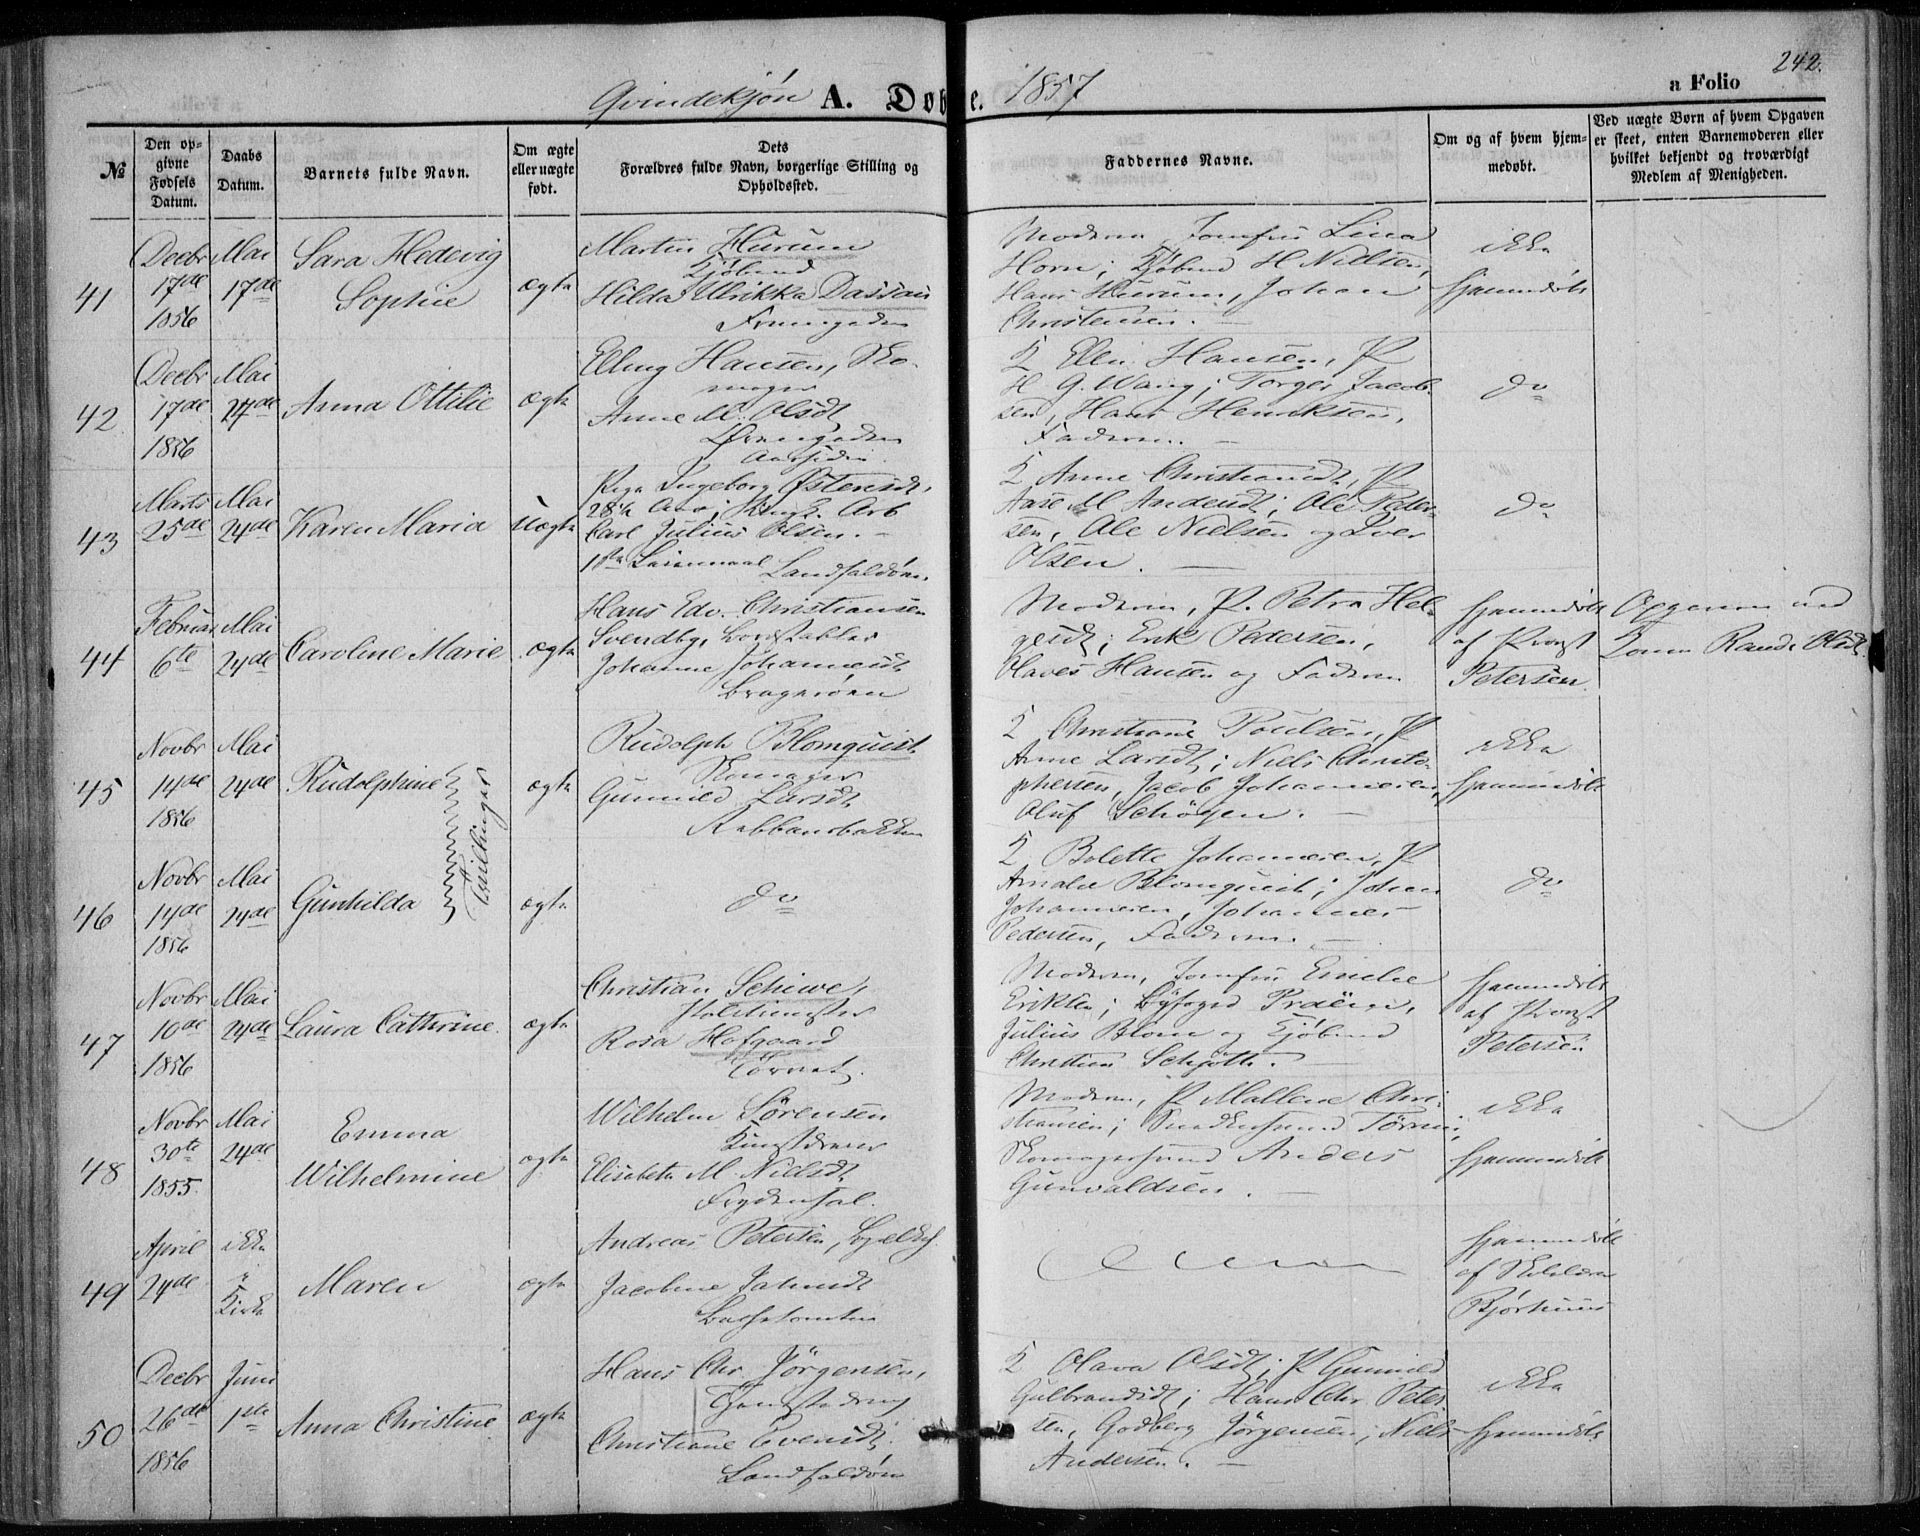 Qvindekjøn A. Døbte. 1857
a Folio 242.
№
Den opgivne Fødsels Datum.
Daabs Datum.
Barnets fulde Navn.
Om ægte eller uægte født.
Dets Forældres fulde Navn, borgerlige Stilling og Opholdssted.
Faddernes Navne.
Om og af hvem hjemmedøbt.
Ved uægte Børn af hvem Opgaven er skeet, enten Barnemoderen eller hvilket bekjendt og troværdigt Medlem af Menigheden.
41
Decbr 17de 1856
Mai 17de
Sara Hedevig
Sophie
ægte
Martin Hurum
Kjøbmd
Hilda Ulrikka Dassau
Moderen, Jomfru Lina
Horn; Kjøbmd H Nielsen,
Hans Hurum, Johan
Christensen.
ikke
hjemmedøbt
42
Decbr 17de 1856
Mai 24de
Anna Ottilie
ægte
Elling Hansen, Sko-
mager
Anne M. Olsdt
K Elen Hansen, P
H G. Wang; Torger Jacob-
sen, Hans Henriksen,
Faderen.
do
43
Marts 25de
Mai 24de
Karen Maria
uægte
Pige Ingeborg Østensdt,
Carl Julius Olsen.
1ste Leiermaal Landfaldøen
K Anne Christiansdt, P
Aase M Andersdt; Ole Peder-
sen, Ole Nielsen og Iver
Olsen.
do
44
Februar 6te
Mai 24de
Caroline Marie
ægte
Hans Edv. Christiansen
Svendby, Bordstabler
Johanne Johannesdt
Bragerøen
Moderen, P. Petra Hel-
gesdt; Erik Pedersen,
Olaves Hansen og Faderen
hjemmedøbt
af Provst
Petersen
Opgaven ved
Konen Randi Olsdt
45
Novbr 14de 1856
Mai 24de
Rudolphine
Tvillinger
ægte
Rudolph Blomquist
Skomager
Gunnild Larsdt
K Christiane Poulsen, P
Anne Larsdt; Niels Christo-
phersen, Jacob Johannesen,
Oluf Schøyen.
ikke
hjemmedøbt
46
Novbr 14de 1856
Mai 24de
Gunhilda
ægte
do
K Bolette Johannesen, P
Amalie Blomquist; Johan
Johannesen, Johannes
Pedersen, Faderen.
do
47
Novbr 10de 1856
Mai 24de
Laura Cathrine
ægte
Christian Schiwe,
Politimester
Rosa Hofgaard
Torvet.
Moderen, Jomfru Emilie
Eriksen; Byfoged Præem,
Julius Blom og Kjøbmd
Christian Schjøtt.
hjemmedøbt
af Provst
Petersen
48
Novbr 30te 1855
Mai 24de
Emma
Wilhelmine
ægte
Wilhelm Sörensen
Kunstdreier
Elisabeth M. Nielsdt
Frydenhal.
Moderen, P Mallene Chri-
stiansen;
Skomagersvend Anders
Gunvaldsen.
ikke
hjemmedøbt
49
April 24de
ikke
i
Kirke
Maren
ægte
Andreas Petersen,
Jacobine
hjemmedøbt
af
50
Decbr 26de 1856
Juni 1ste
Anna Christine
ægte
Hans Chr. Jørgensen,
Christiane Evensdt
Landfaldøen
K Olava Olsdt; P Gunnild
Gulbrandsdt; Hans Chr. Peter-
sen, Godberg Jørgensen; Niels
Andersen.
ikke
hjemmedøbt